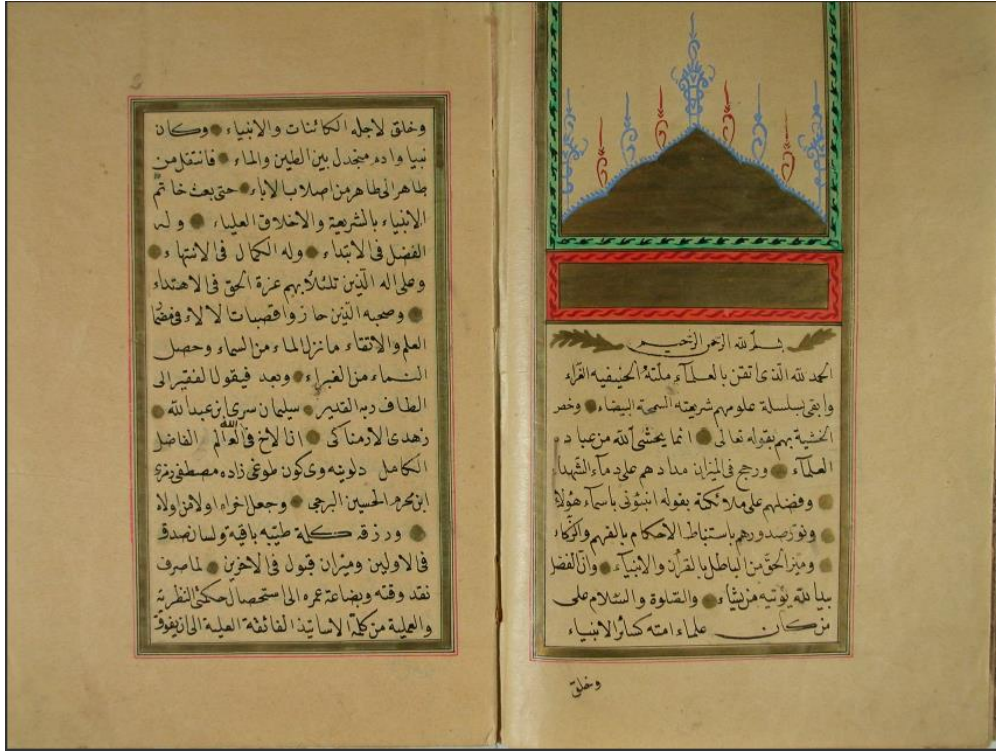 بسم الله الرحمن الرحيم
الحمد لله الذى اتقن بالعلمآء ملته الحنيفيه الغراء
وابقى بسلسلة علومهم شريعته السمحة البيضاء وخصر
الخشية بهم بقوله تعالى انما يخشى الله من عباده
العلمآء ورجح فى الميزان مدادهم على دمآء الشهداء
وفضلهم على ملائكته بقوله انبئونى باسمآء هؤلاء
ونور صدورهم باستنباط الاحكام بالفهم والزكاء
وميز الحق من الباطل بالقرأن والانبيآء وان الفضل
بيد الله يؤتيه من يشاء والصلوة والسلام على
من كان علماء امته كسائر الانبياء
وخلق
وخلق لاجله الكائنات والانبياء وكان
نبيا وادم منجدل بين الطين والماء فانتقل من
طاهر الى طاهر من اصلاب الاباء حتى بعث خاتم
الانبياء بالشريعة والاخلاق العلياء وله
الفضل فى الابتداء وله الكمال فى الانتهاء
وعلى اله الذين تلئلأ بهم عزة الحق فى الاهتداء
وصحبه الذين حازوا قصبات لالاء فى
العلم والاتقاء مانزل الماء من السماء وحصل
النماء من الغبراء وبعد فيقول الفقير الى
الطاف ربه القدير سليمان سرى ابن عبد الله
زهدى الارمناكى ان الاخ فى الله العالم الفاضل
الكامل مصطفى رمزى
ابن محرم الحسين وجعل اخراه اولا من اولاه
ورزقه كلمة طيبه باقيه ولسان صدق
فى الاولين وميزان قبول فى الاخرين لما صرف
نقد وقته وبضاعة عمره الى استحصال حكمتى النظرية
والعملية من كلمة الاساتيذ الفائقة العلية الى ان يفوق